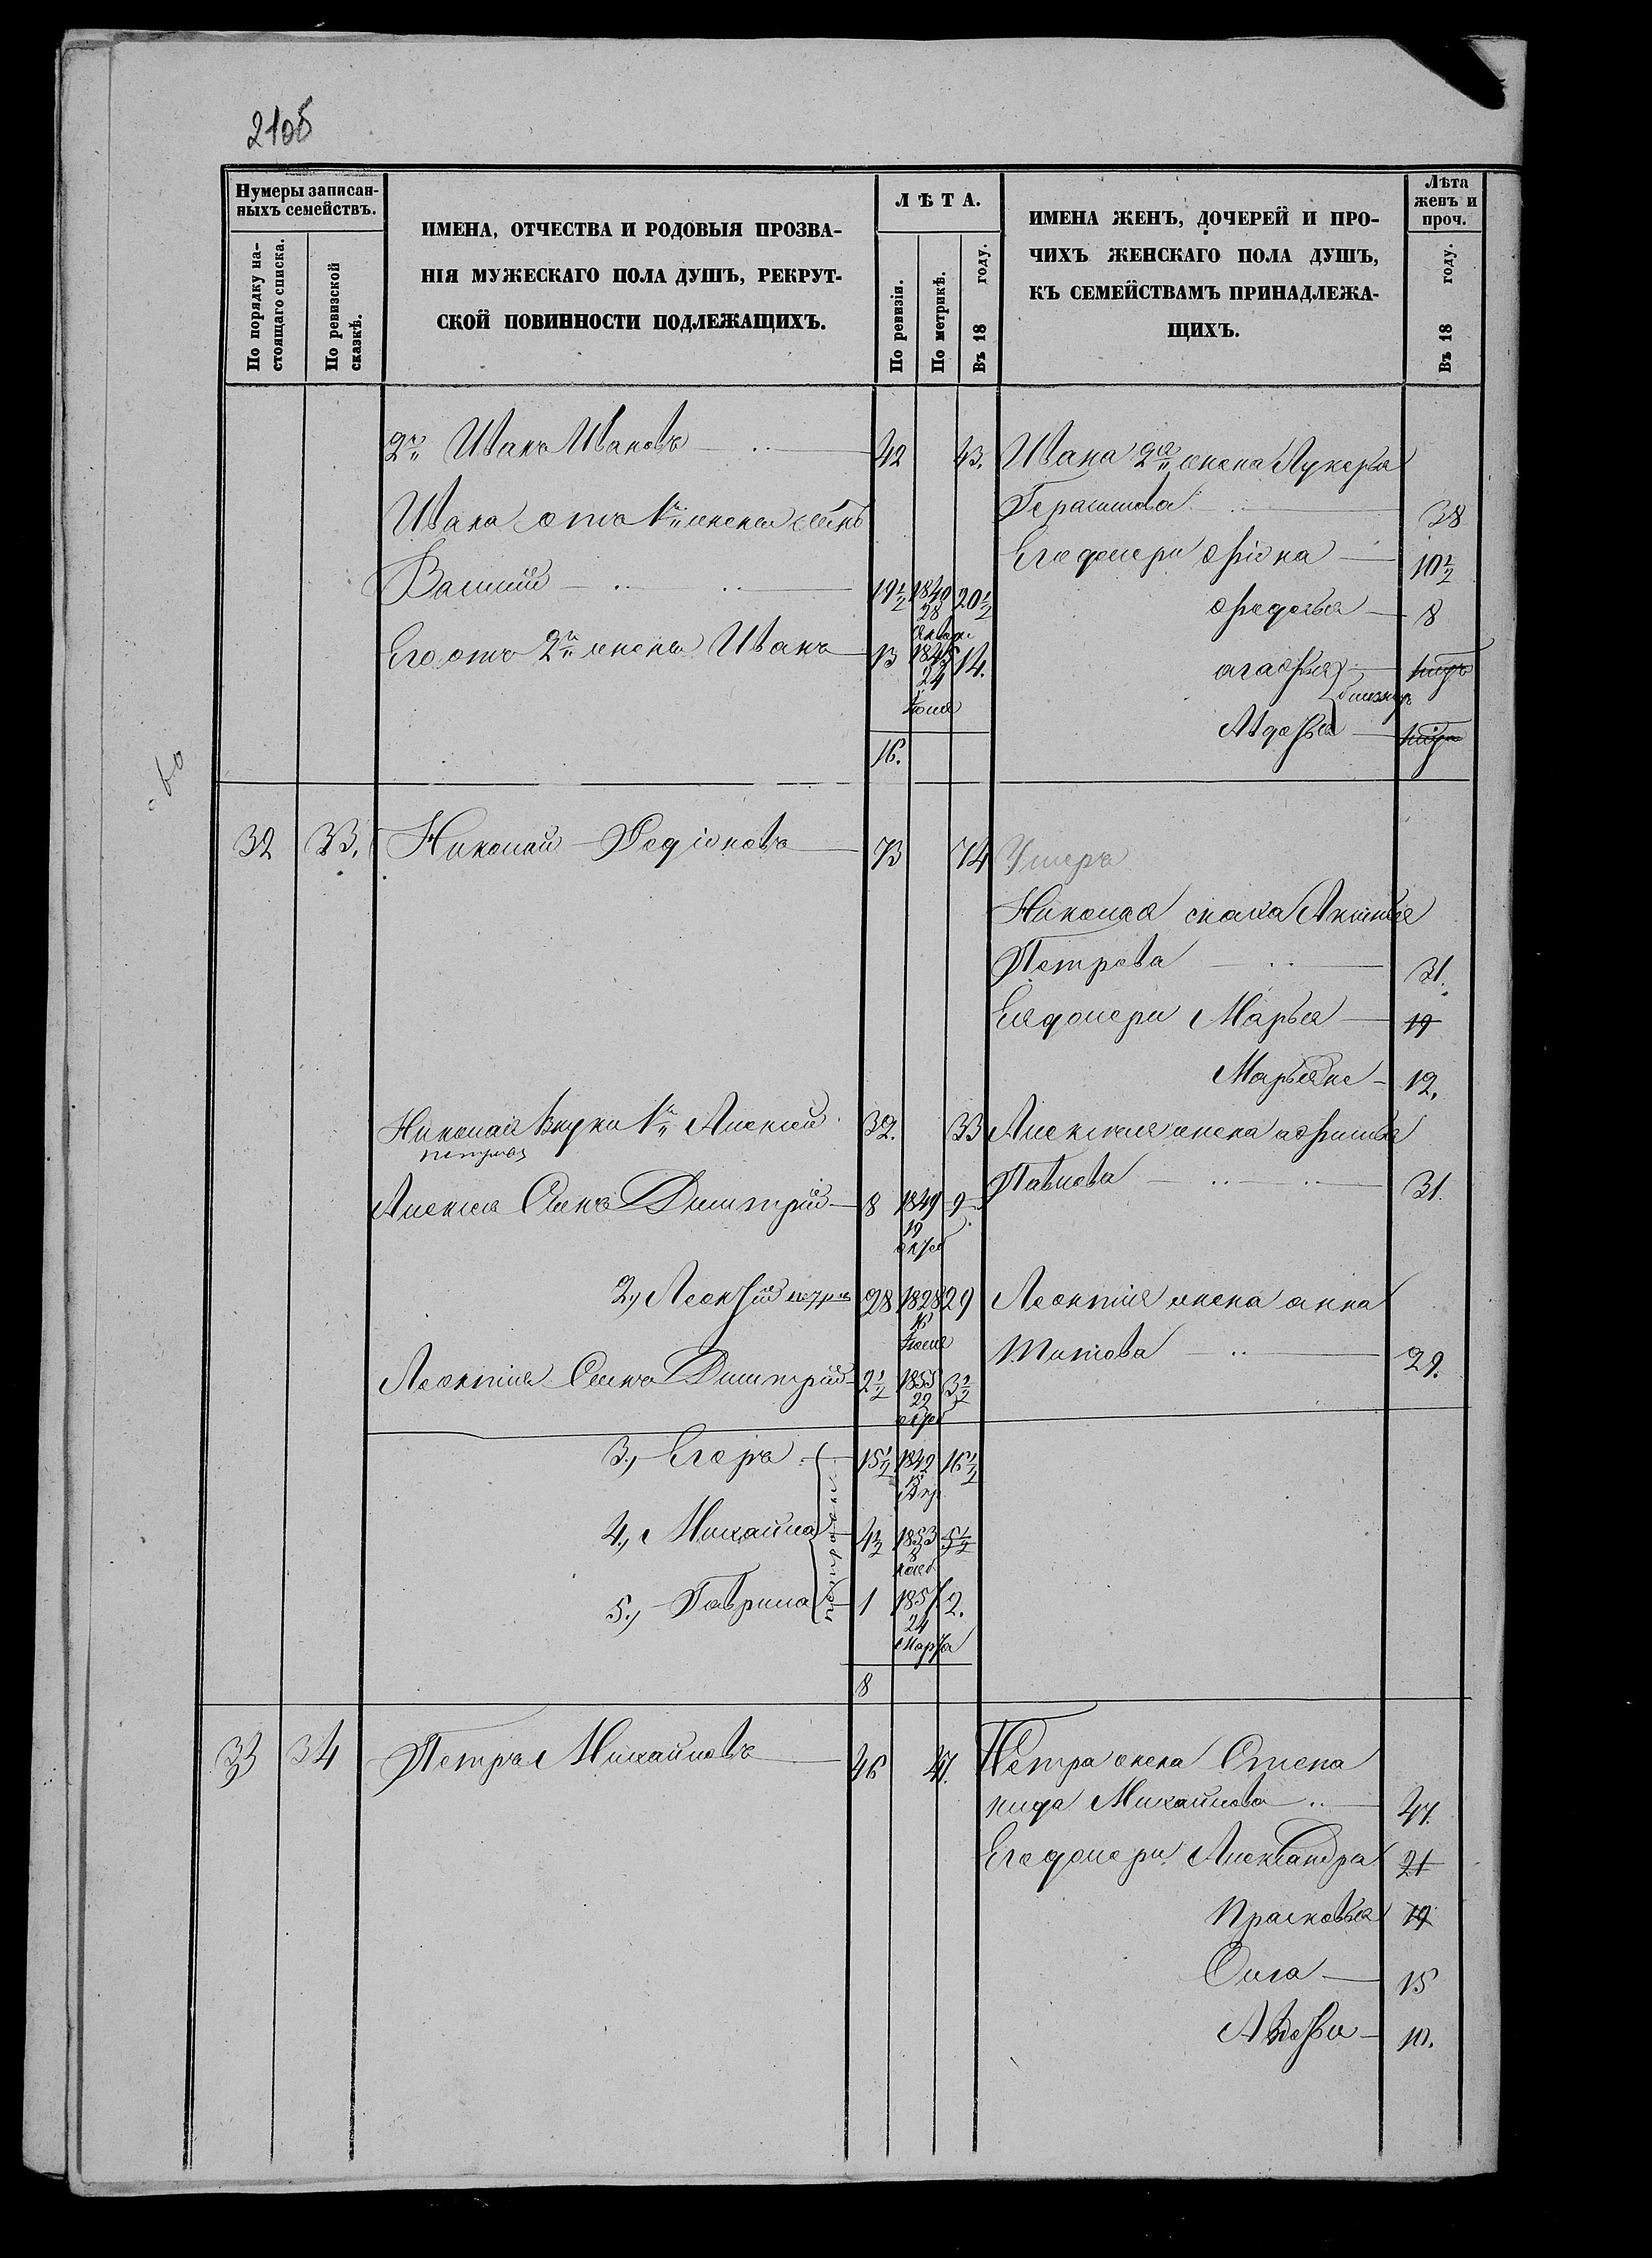 210б
Нумеры записан-
ныхъ семействъ.
По порядку на-
стоящаго списка.
По ревизской
сказкѣ.
ИМЕНА, ОТЧЕСТВА И РОДОВЫЯ ПРОЗВА-
НІЯ МУЖЕСКАГО ПОЛА ДУШЪ, РЕКРУТ-
СКОЙ ПОВИННОСТИ ПОДЛЕЖАЩИХЪ.
ЛѢТА.
По ревизіи.
По метрикѣ.
Въ 18 году.
ИМЕНА ЖЕНЪ, ДОЧЕРЕЙ И ПРО-
ЧИХЪ ЖЕНСКАГО ПОЛА ДУШЪ,
КЪ СЕМЕЙСТВАМЪ ПРИНАДЛЕЖА-
ЩИХЪ.
Лѣта
женъ и
проч.
Въ 18 году.
2й Иванъ Ивановъ 42 43. Ивана 2го жена Лукерья
Герасимова 38
Ивана отъ 1й жены сынъ
Василий 19½ 1840 20½
28
Его дочери Фіона 10½
Федосья 8
Его отъ 2й жены Иванъ 13 1845 14.
24
Июля
Агафья
близнецъ
Авдотья
16.
32 33. Николай Родіоновъ 73 74 Умеръ
Николая сноха Аксинья
Петрова 31.
Ея дочери Марья 19
Марьяна 12.
Николая внуки 1й Алексей 32. 33 Алексея жена Афимья
петровъ
Павлова 31.
Алексея Сынъ Дмитрій 8 1849 9.
19
октяб
2, Леонтій петровъ 28 1828 29 Леонтия жена Анна
16
Июля
Титова 29.
Леонтия Сынъ Дмитрій 2½ 1855 3½
22
октяб
3, Егоръ 15½ 1842 16½
Апр
4, Михайла 4½ 1853 5½
8
нояб
5, Гаврила 1 1857 2.
24
марта
8
33 34 Петръ Михайловъ 46 47. Петра жена Степа
нида Михайлова 47.
Его дочери Александра 21
Прасковья 19
Олга 15
Авдотья 10.